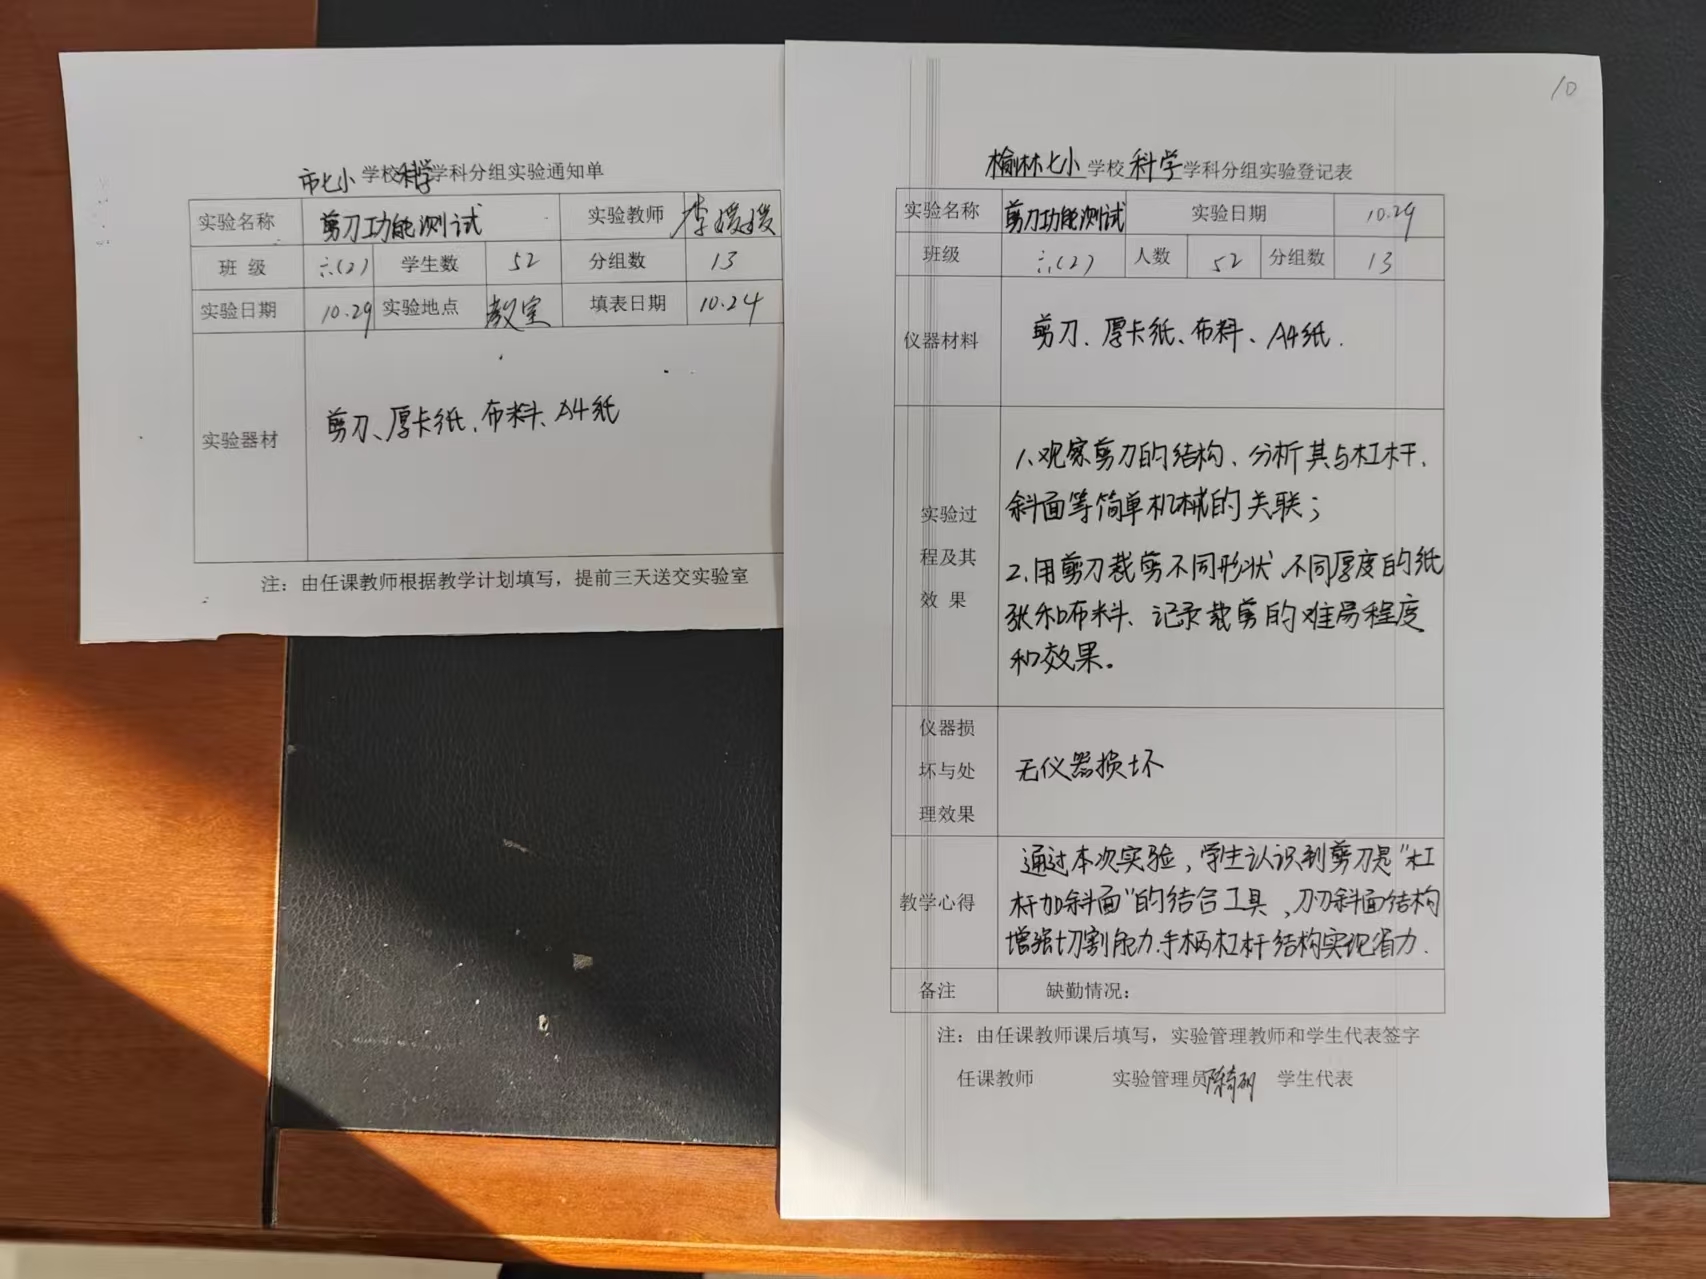 市七小学校科学学科分组实验通知单
实验名称 剪刀功能测试 实验教师 李媛媛
班级 六(2) 学生数 52 分组数 13
实验日期 10.29 实验地点 教室 填表日期 10.24
实验器材 剪刀、厚卡纸、布料、A4纸
注：由任课教师根据教学计划填写，提前三天送交实验室
10
榆林七小学校科学学科分组实验登记表
实验名称 剪刀功能测试 实验日期 10.29
班级 六(2) 人数 52 分组数 13
仪器材料 剪刀、厚卡纸、布料、A4纸.
实验过
程及其
效果
1、观察剪刀的结构、分析其与杠杆、
斜面等简单机械的关联；
2、用剪刀裁剪不同形状、不同厚度的纸
张和布料、记录裁剪的难易程度
和效果。
仪器损
坏与处
理效果
无仪器损坏
教学心得
通过本次实验，学生认识到剪刀是“杠
杆加斜面”的结合工具，刀刃斜面结构
增强切割能力.手柄杠杆结构实现省力.
备注 缺勤情况：
注：由任课教师课后填写，实验管理教师和学生代表签字
任课教师 实验管理员 学生代表